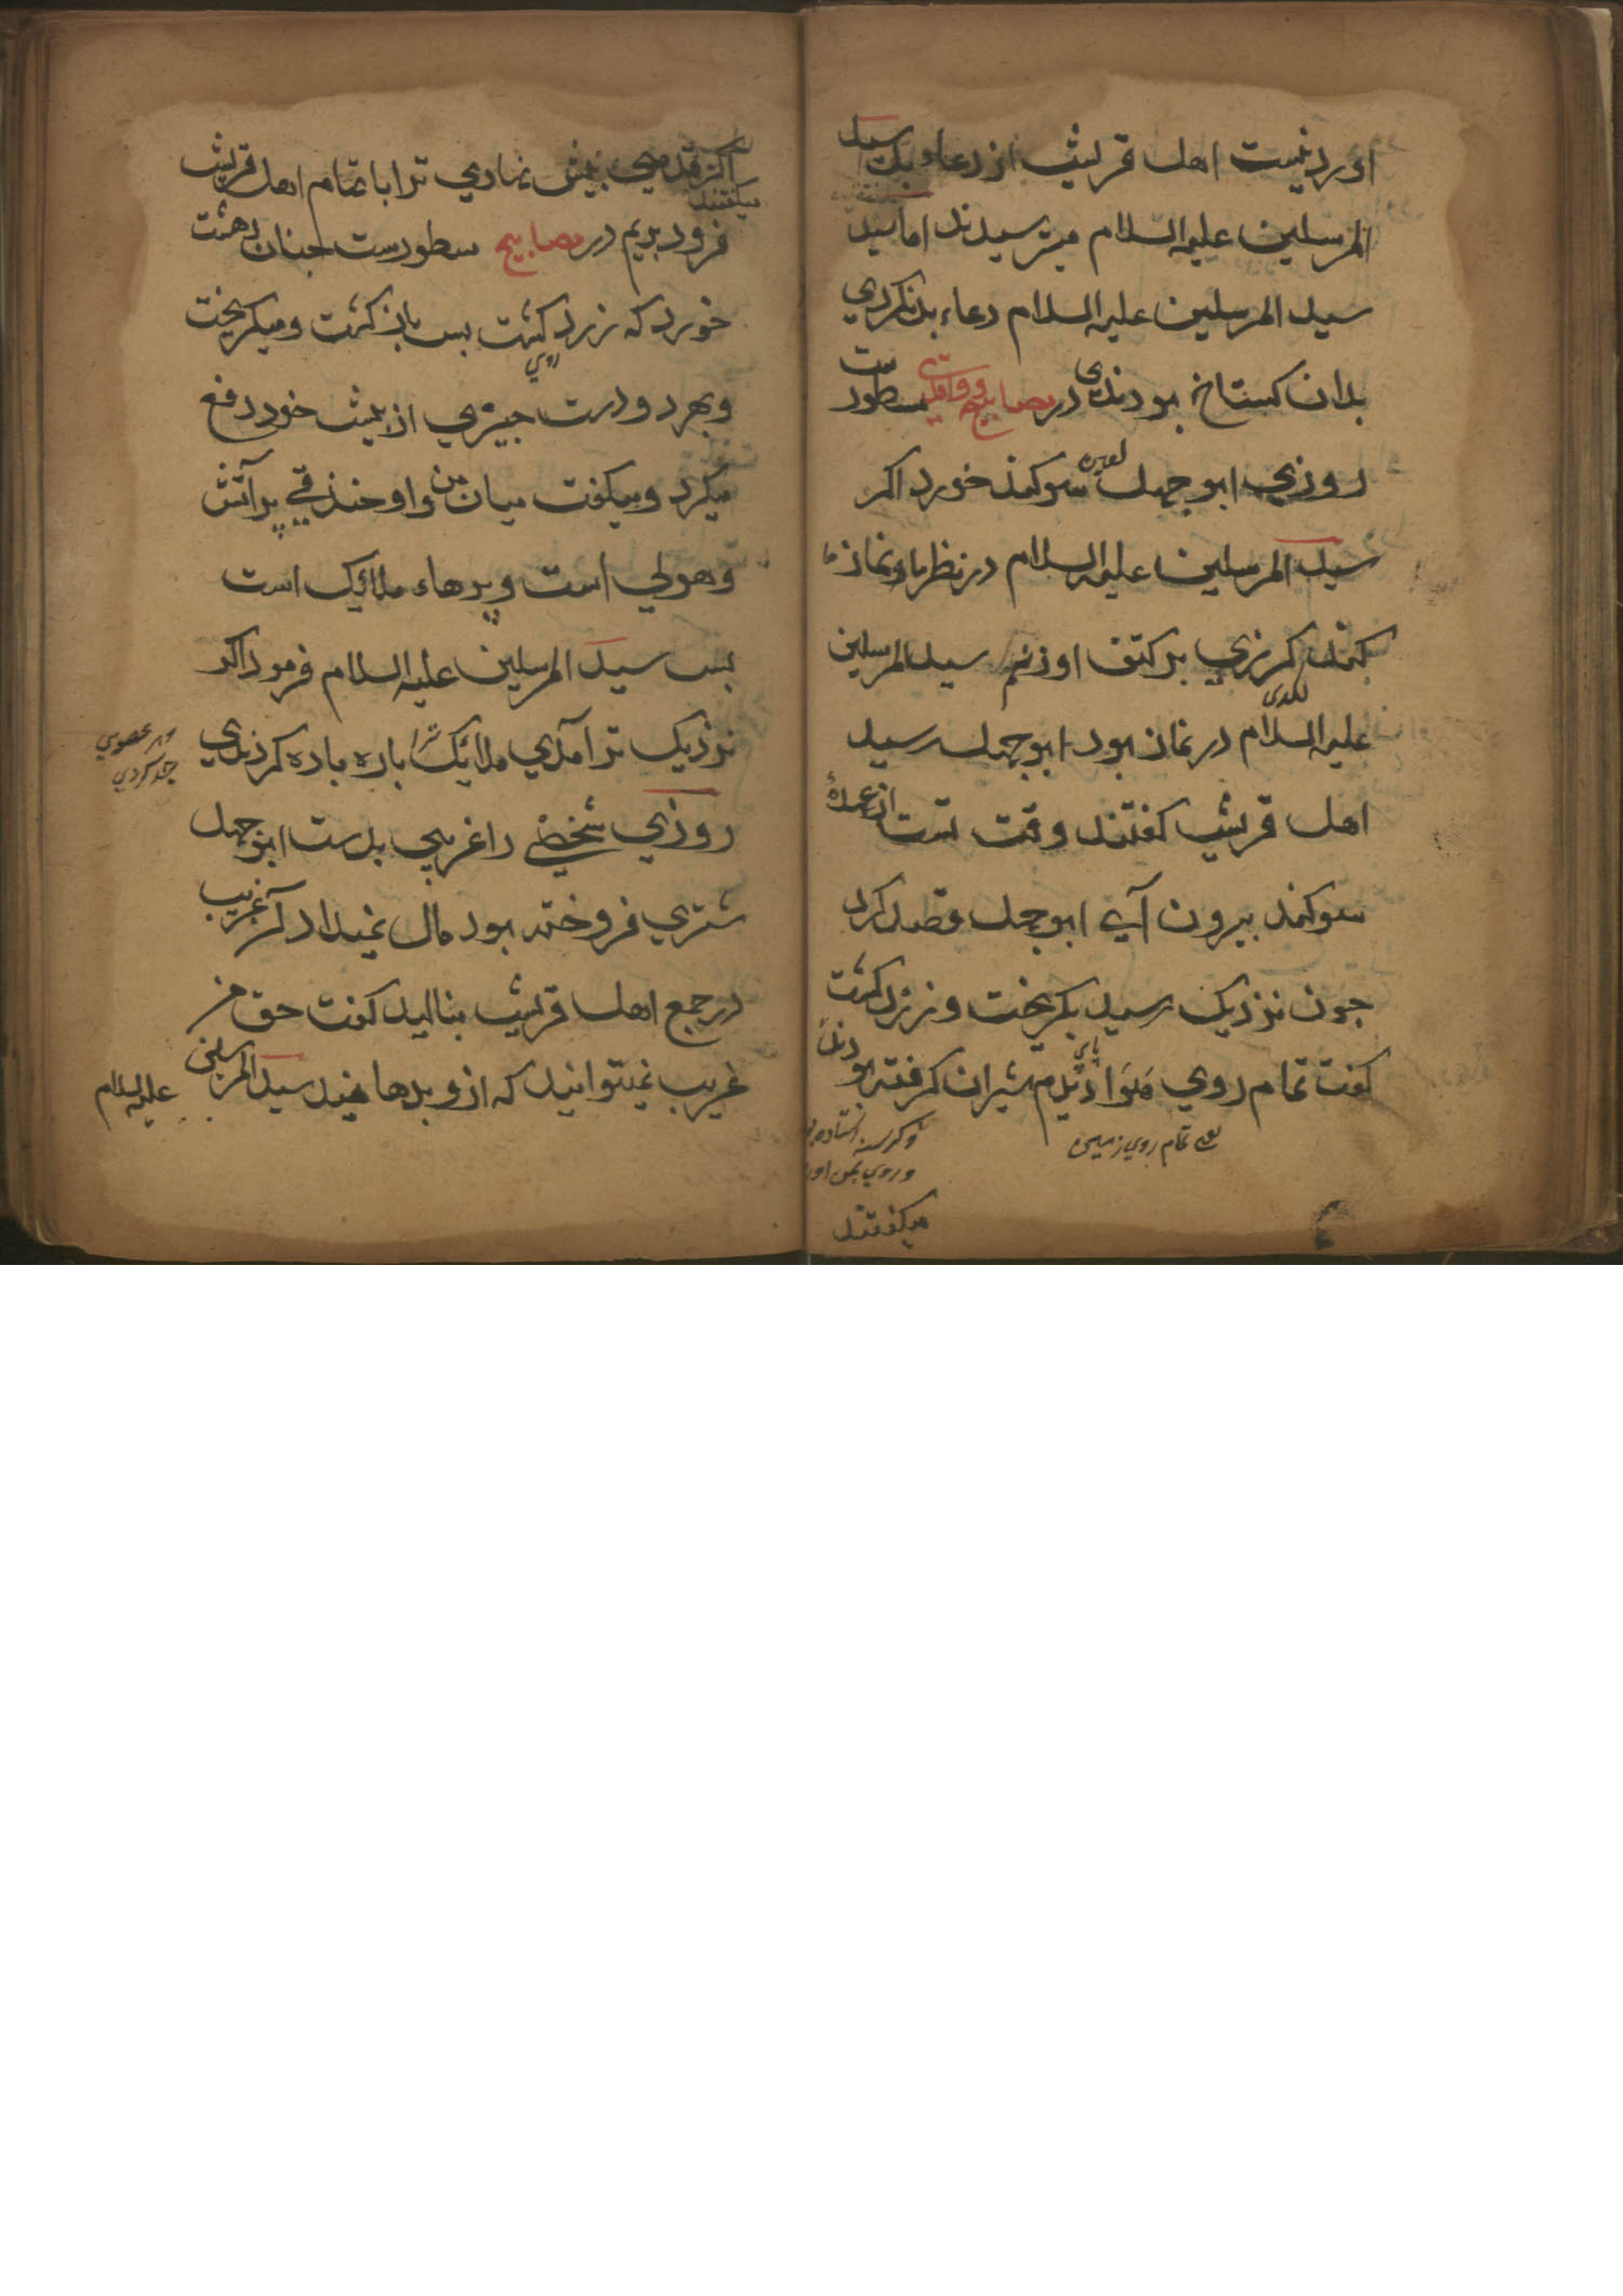 اورد نیست اهل قریش از دعاء بد سید
المرسلین علیه السلام میترسیدند اما سید
سید المرسلین علیه السلام دعاء بد نکردی
بدان کستاخ بودندی در مصابیح و واقدی مسطور ست
روزی ابو جهل لعین سوکند خورد اکر
سید المرسلین علیه السلام در نظر ما نماز
کرزی بر کتف او زنم سید المرسلین
علیه السلام در نماز بود ابو جهل رسید
اهل قریش کفتند وقت تست از عهدهٔ
سوکند بیرون آی ابو جهل قصد کرد
جون نزدیک رسید بکریخت و زرد کشت
کفت تمام روی شیران کرفته بودند
یعنی تمام روی زمین
و کرسنه استاده
و روی بمن اور
میکفتند
اکر قدمی بیش نهادی ترا با تمام اهل قریش
میکفتند
فرود بریم در مصابیح مسطورست جنان دهشت
خورد که زرد کشت بس باز کشت و میکریخت
روی
و بهر دو دست جیزی از بیش خود دفع
میکرد و میکفت میان من و او خندقی پر آتش
و هولی است و پرهاء ملائیک است
بس سید المرسلین علیه السلام فرمود اکر
نزدیک تر آمدی ملائیک ترا باره باره کردندی
هر عضوی
جدا کردی
روزی شخصی را غریبی بدست ابو جهل
شتری فروخته بود مال نمیداد آن غریب
در جمع اهل قریش بنالید کفت حق من
غریب نمیتوانید که ازو بدهانید سید المرسلین
علیه السلام